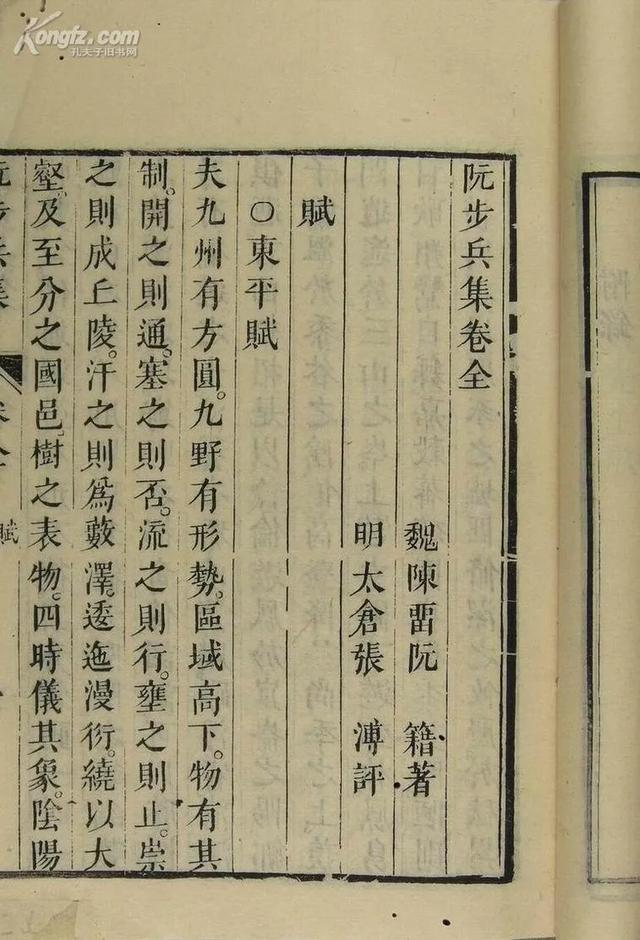 Kongfz.com
孔夫子旧书网
阮步兵集卷全
魏陳畱阮籍著
明太倉張溥評
賦
○東平賦
夫九州有方圓。九野有形勢。區域高下。物有其
制。開之則通。塞之則否。流之則行。壅之則止。崇
之則成丘陵。汙之則爲藪澤。逶迤漫衍。繞以大
壑。及至分之國邑。樹之表物。四時儀其象。陰陽
阮步兵集
卷全
賦